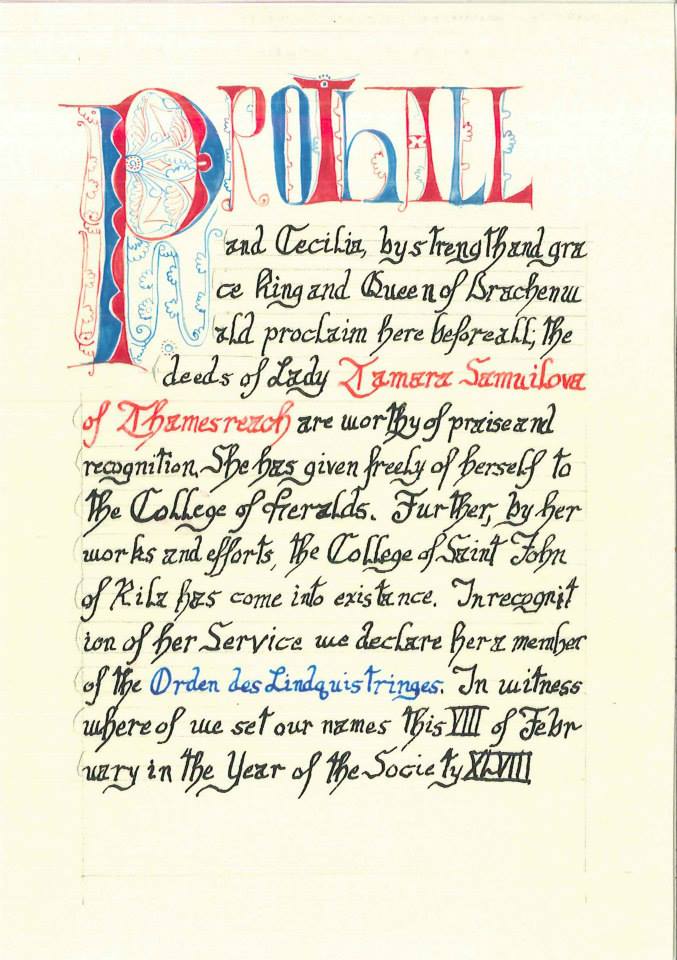 PROThALL
and Cecilia, by strength and gra
ce King and Queen of Drachenw
ald proclaim here before all; the
deeds of Lady Tamara Samuilova
of Thamesreach are worthy of praise and
recognition. She has given freely of herself to
the College of Heralds. Further, by her
works and efforts, the College of Saint John
of Rila has come into existance. In recognit
ion of her Service we declare her a member
of the Orden des Lindquistringes. In witness
whereof we set our names this VIII of Febr
uary in the Year of the Society XLVIII